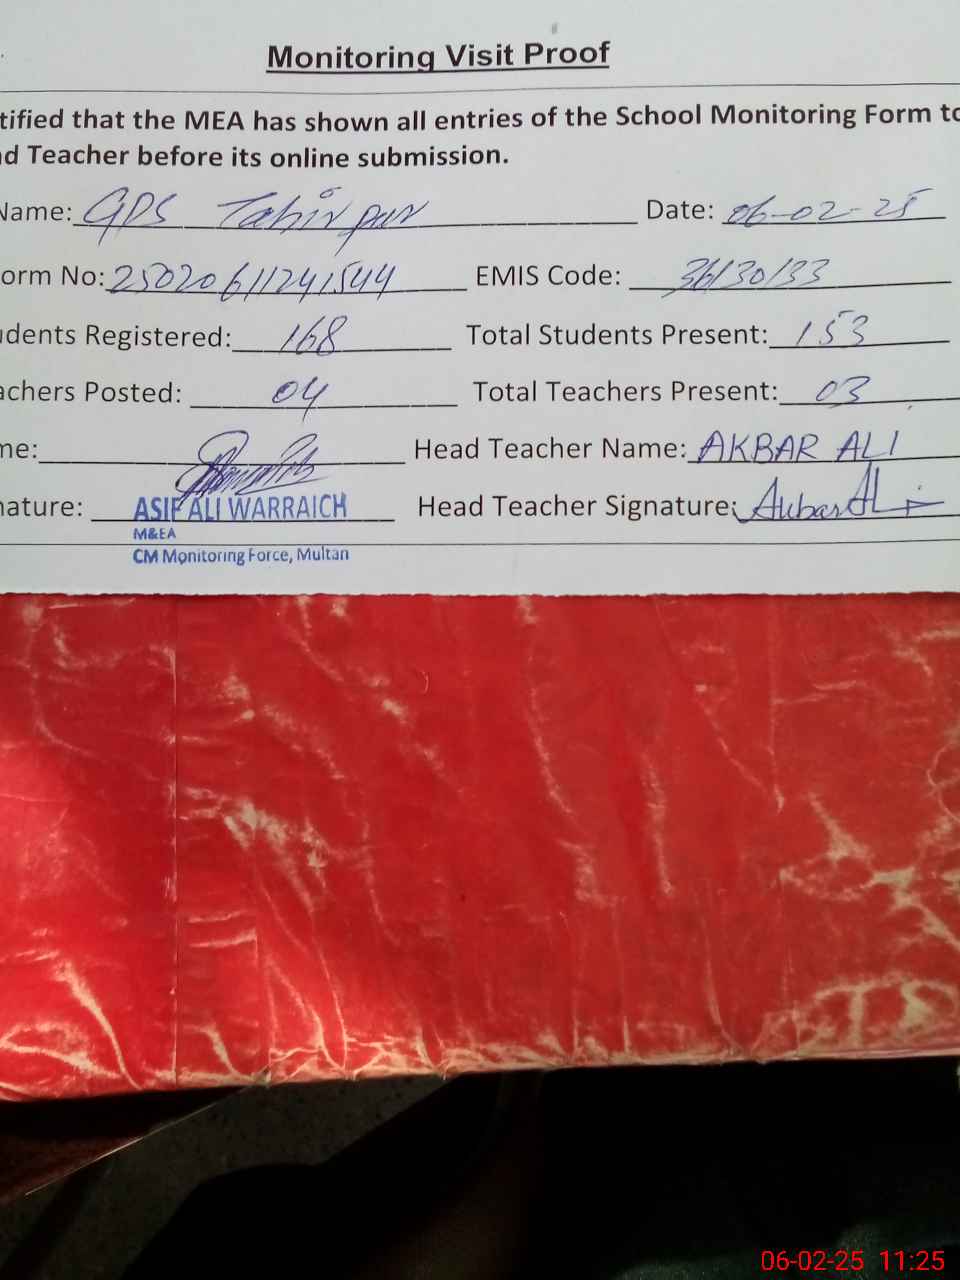 Monitoring Visit Proof
tified that the MEA has shown all entries of the School Monitoring Form to
d Teacher before its online submission.
Name: GPS Tahirpur Date: 06-02-25
orm No: 25020611241544 EMIS Code: 36130133
dents Registered: 168 Total Students Present: 153
achers Posted: 04 Total Teachers Present: 03
me: Head Teacher Name: AKBAR ALI
nature: ASIF ALI WARRAICH Head Teacher Signature: Akbar Ali
M&EA
CM Monitoring Force, Multan
06-02-25 11:25